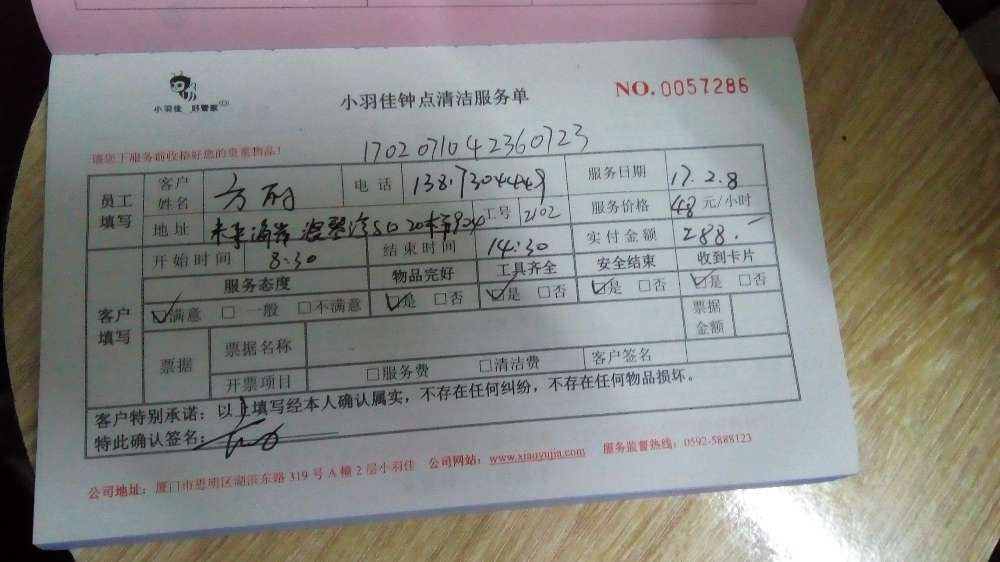 小羽佳 好管家
小羽佳钟点清洁服务单
NO. 0057286
请您于服务前收拾好您的贵重物品!
1702071042360723
员工填写 客户姓名 方 电话 138.7304449 服务日期 17.2.8
地址 未来海岸 5020 904 工号 2102 服务价格 48 元/小时
开始时间 8:30 结束时间 14:30 实付金额 288.-
客户填写 服务态度 物品完好 工具齐全 安全结束 收到卡片
☑满意 □ 一般 □不满意 ☑是 □否 ☑是 □否 ☑是 □否 ☑是 □否
票据 票据名称 票据金额
开票项目 □服务费 □清洁费 客户签名
客户特别承诺:以上填写经本人确认属实,不存在任何纠纷,不存在任何物品损坏。
特此确认签名:
公司地址:厦门市思明区湖滨东路 319 号 A 幢 2 层小羽佳 公司网站:www.xiaoyujia.com 服务监督热线:0592-5888123